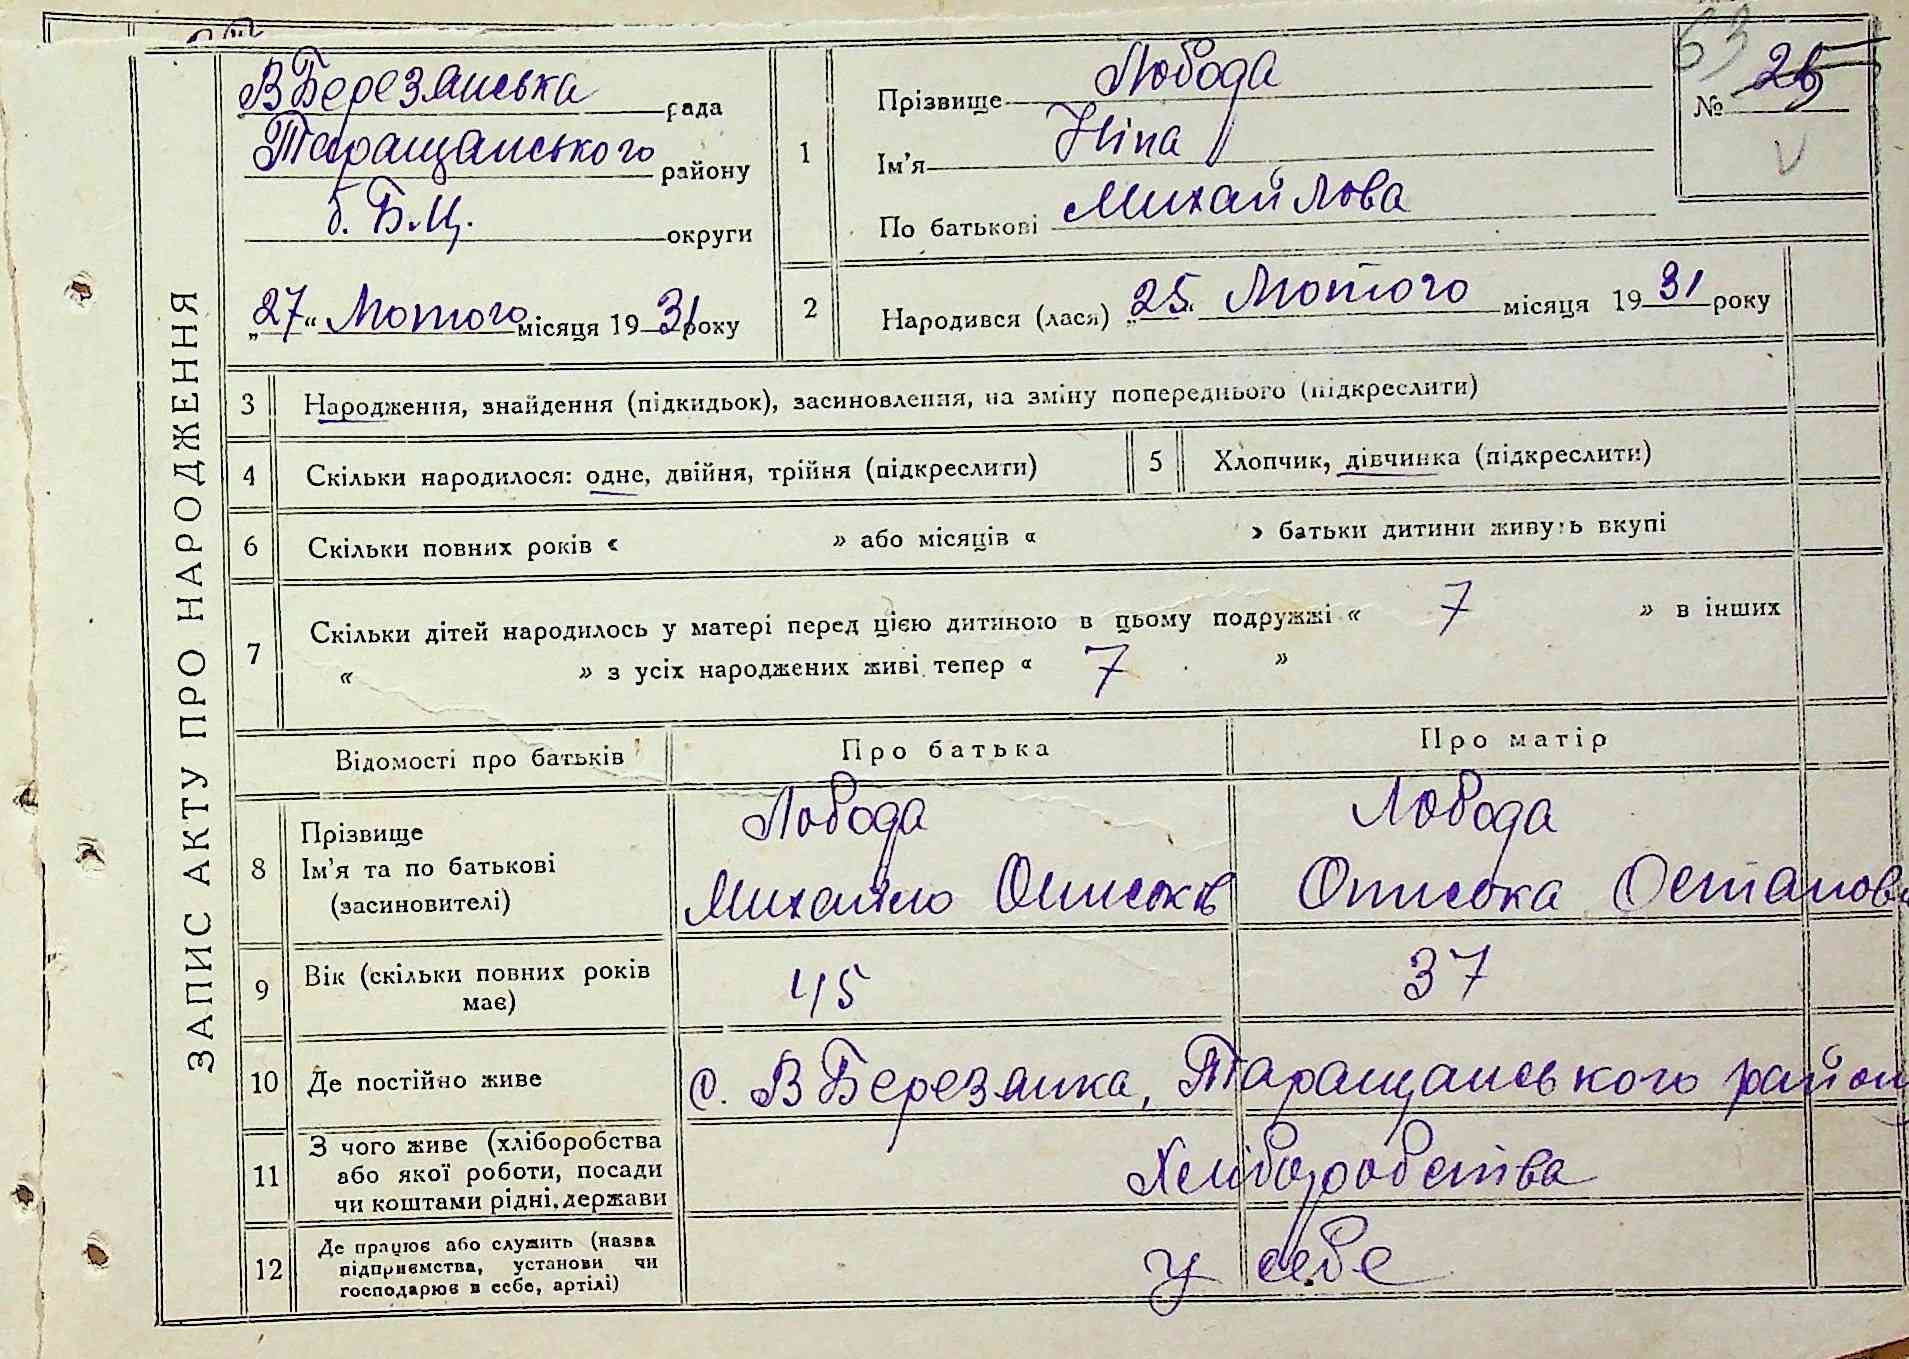 ЗАПИС АКТУ ПРО НАРОДЖЕННЯ
В Березянська рада
Таращанського району
б. Б.Ц. округи
„27“ Лютого місяця 1931 року
1
Прізвище Лобода
Ім’я Ніна
По батькові Михайлова
63
№ 26
2
Народився (лася) „25“ Лютого місяця 1931 року
3 Народження, знайдення (підкидьок), засиновлення, на зміну попереднього (підкреслити)
4 Скільки народилося: одне, двійня, трійня (підкреслити)
5 Хлопчик, дівчинка (підкреслити)
6 Скільки повних років « » або місяців « » батьки дитини живуть вкупі
7 Скільки дітей народилось у матері перед цією дитиною в цьому подружжі « 7 » в інших
« » з усіх народжених живі тепер « 7 »
Відомості про батьків Про батька Про матір
8 Прізвище Лобода Лобода
Ім’я та по батькові Михайло Описька Останова
(засиновителі)
9 Вік (скільки повних років 45 37
має)
10 Де постійно живе с. В Березянка, Таращанського район
11 З чого живе (хліборобства
або якої роботи, посади Хліборобства
чи коштами рідні, держави
12 Де працює або служить (назва
підприємства, установи чи у себе
господарює в себе, артілі)